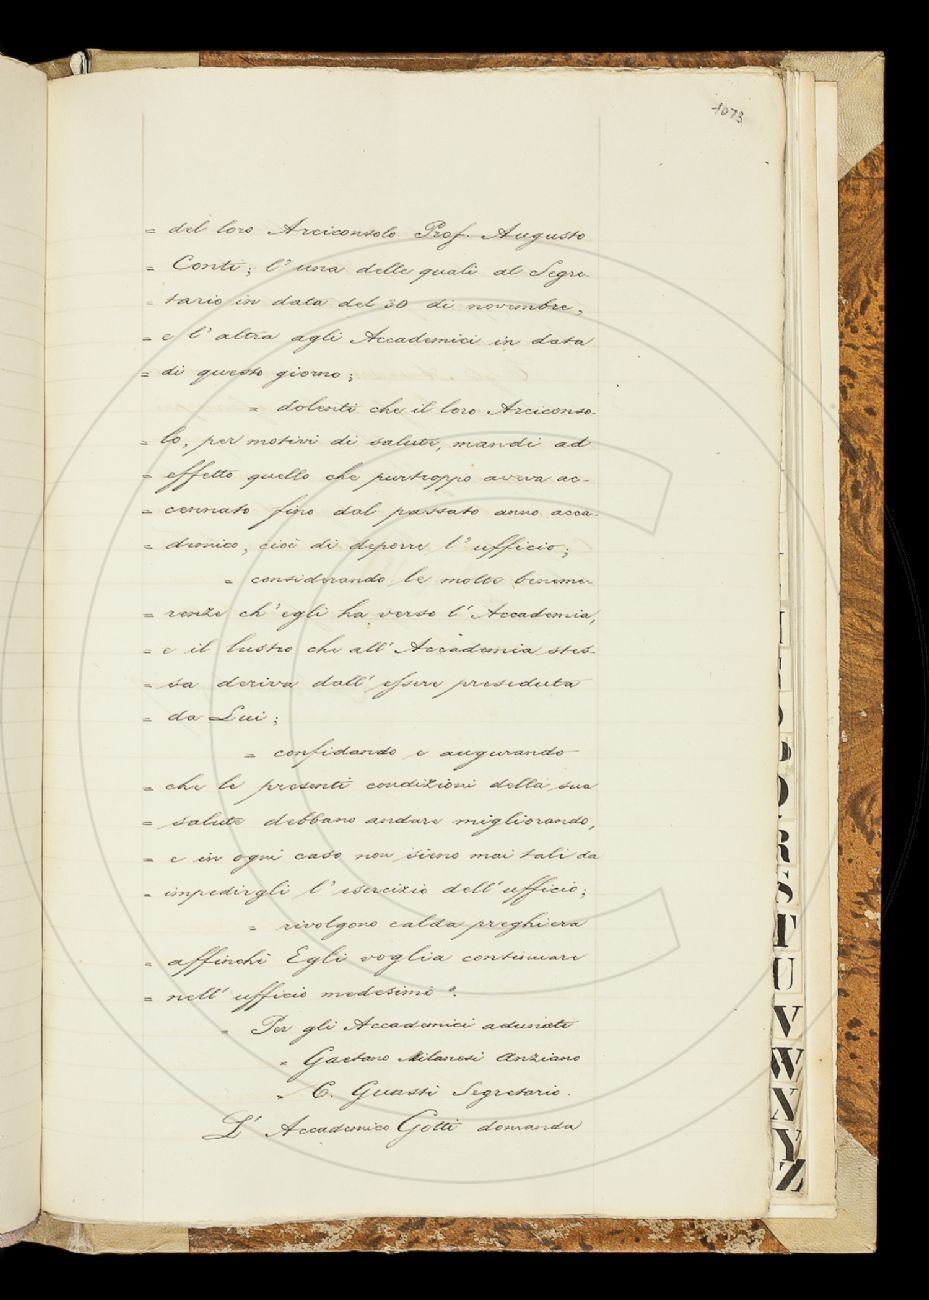 1073
= del loro Arciconsolo Prof. Augusto
= Conti; l'una delle quali al Segre
= tario in data del 30 di novembre,
= e l'altra agli Accademici in data
= di questo giorno;
= dolenti che il loro Arciconso-
= lo, per motivi di salute, mandi ad
= effetto quello che purtroppo aveva ac-
= cennato fino dal passato anno acca-
= demico, cioè di deporre l'ufficio;
= considerando le molte beneme-
= renze ch'egli ha verso l'Accademia,
= e il lustro che all'Accademia stes-
= sa deriva dall'essere preseduta
= da Lui;
= confidando e augurando
= che le presenti condizioni della sua
= salute debbano andare migliorando,
= e in ogni caso non sieno mai tali da
= impedirgli l'esercizio dell'ufficio;
= rivolgono calda preghiera
= affinchè Egli voglia continuare
= nell'ufficio medesimo".
= Per gli Accademici adunati
= Gaetano Milanesi Anziano
= C. Guasti Segretario.
L'Accademico Gotti domanda
R
S
T
U
V
W
X
Y
Z